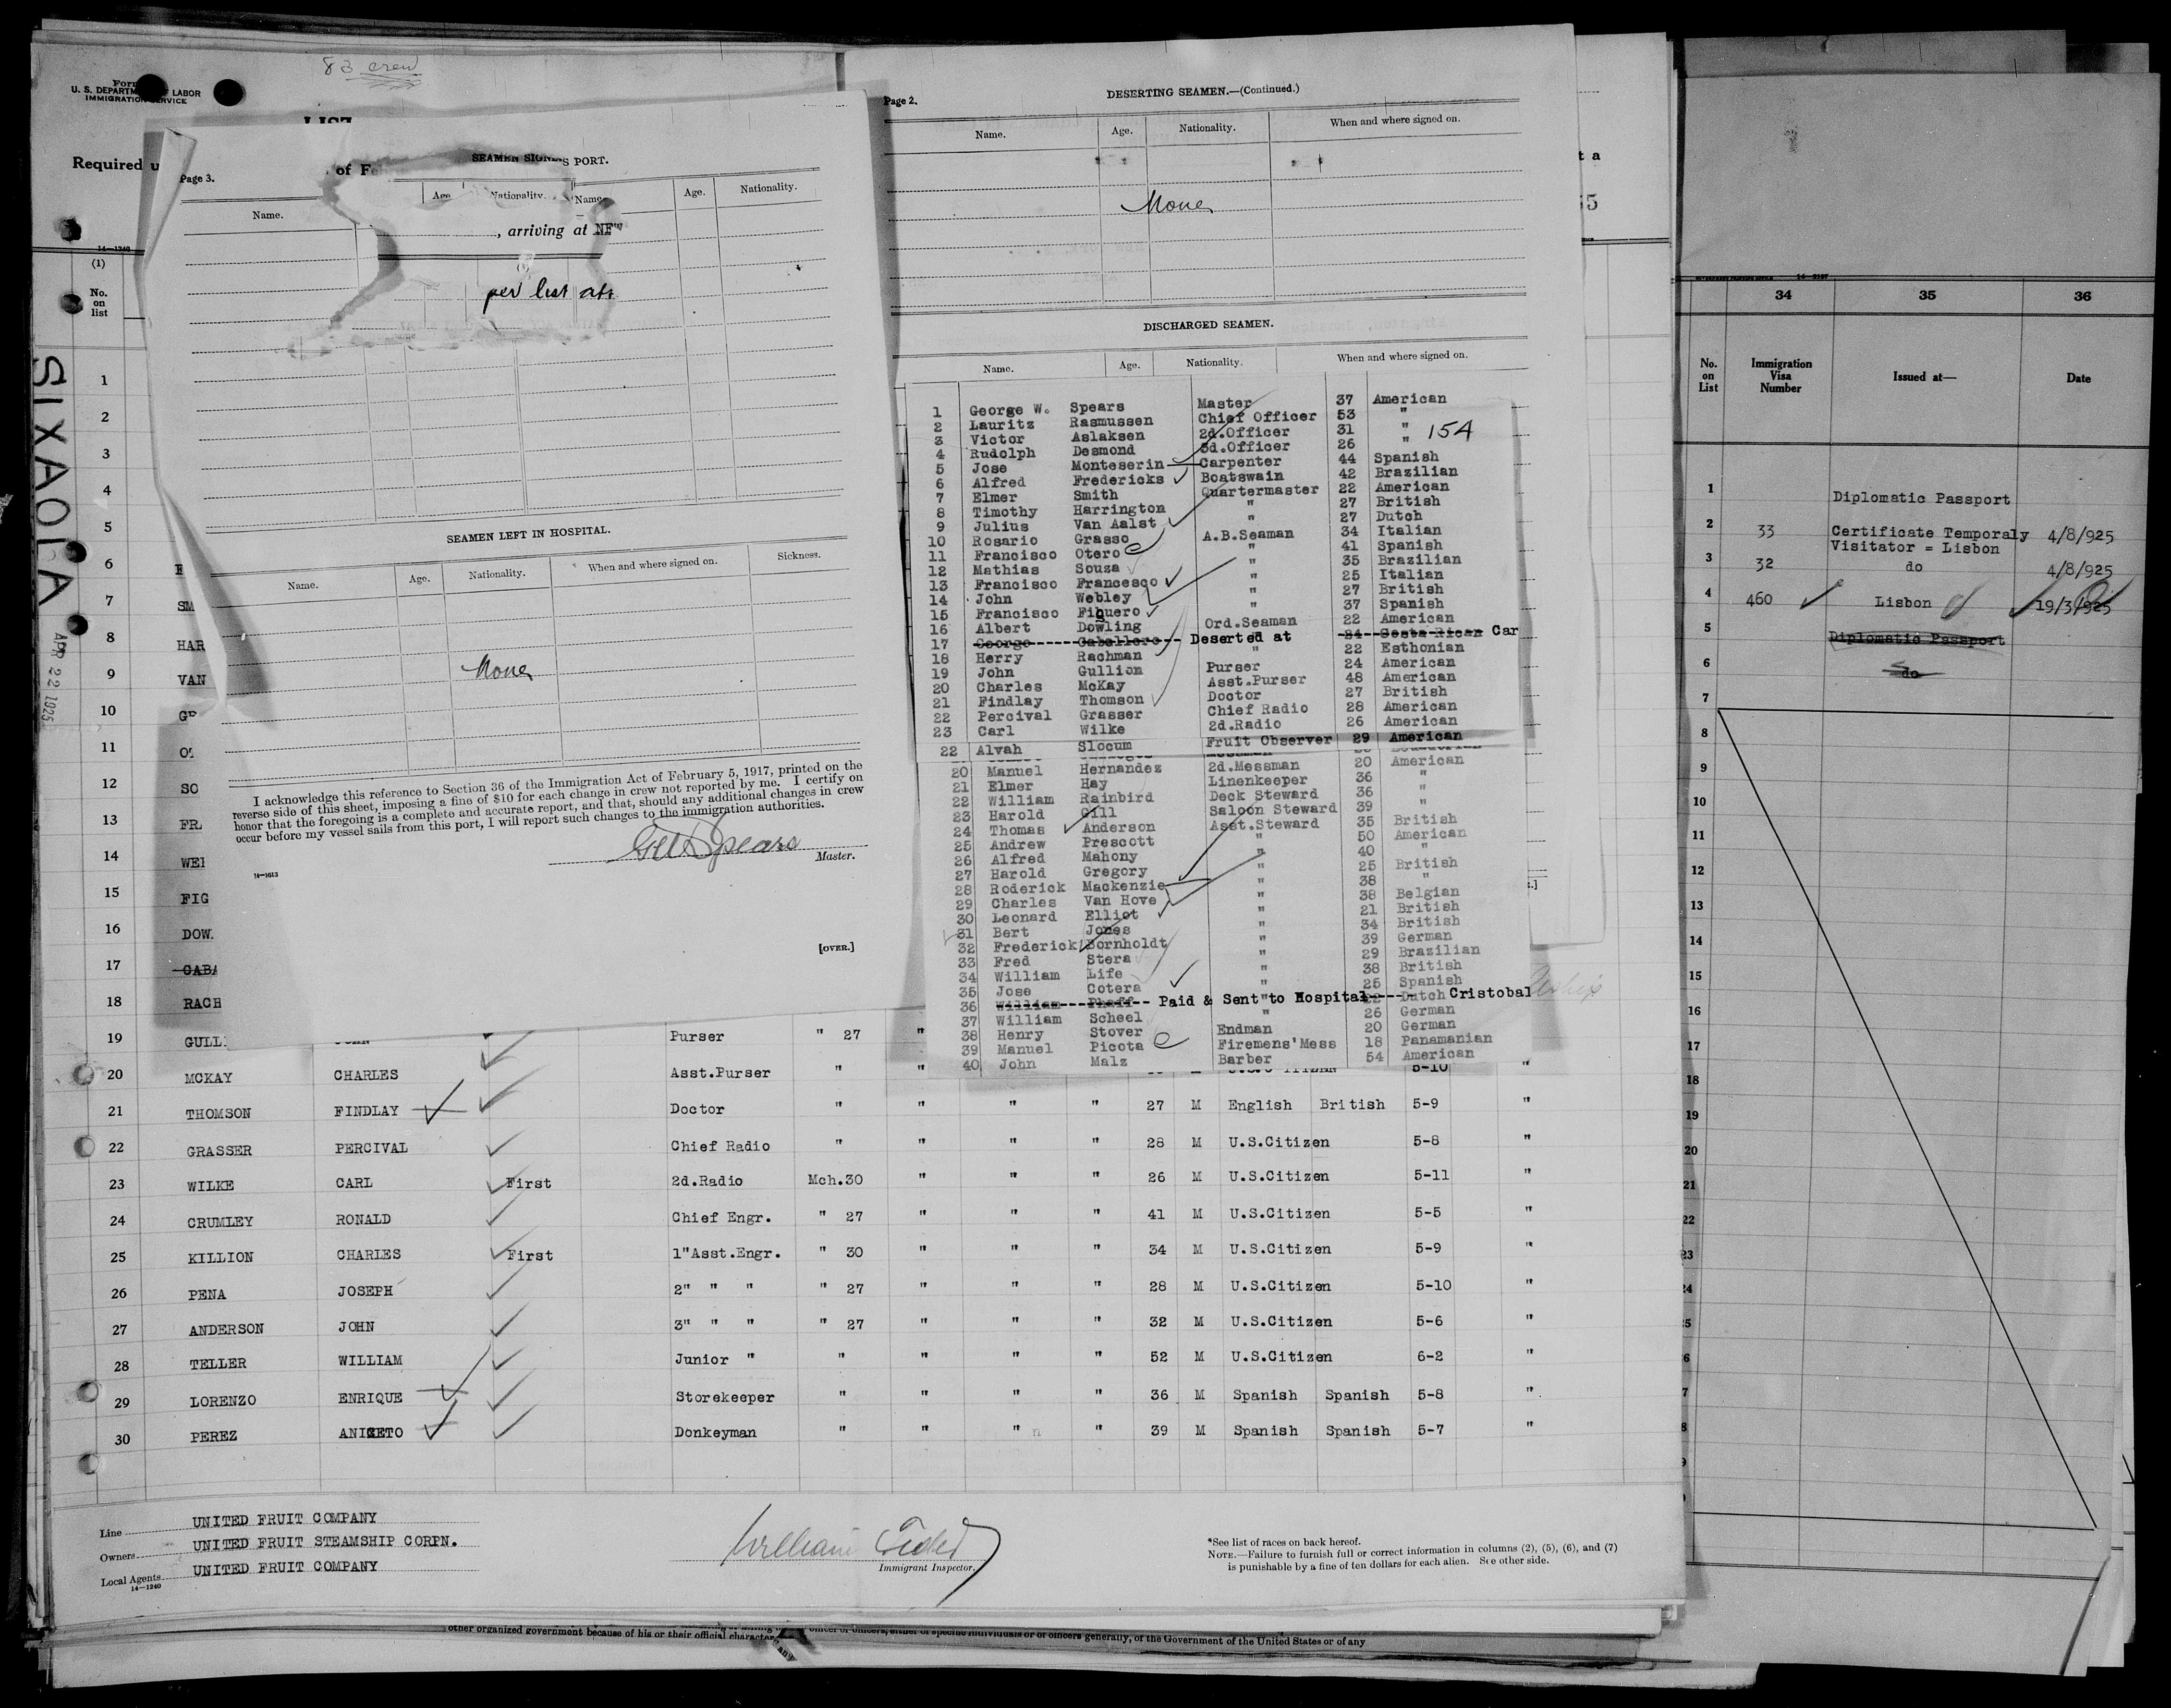 83 crew
U. S. DEPARTM LABOR
IMMIGRATION SERVICE
Required u
of Fe
14—1240
(1)
No.
on
list
SIXAOLA
APR 22 1925
1
2
3
4
5
6
7
SM
8
HAR
9
VAN
10
11
12
SO
13
14
15
FIG
16
DOW.
17
CABA
18
RACH
Page 3.
SEAMEN SIGN S PORT.
Name.
Age
Nationality.
Name
Age.
Nationality.
, arriving at NEW
per list att
SEAMEN LEFT IN HOSPITAL.
Name.
Age.
Nationality.
When and where signed on.
Sickness.
None
I acknowledge this reference to Section 36 of the Immigration Act of February 5, 1917, printed on the
reverse side of this sheet, imposing a fine of $10 for each change in crew not reported by me. I certify on
honor that the foregoing is a complete and accurate report, and that, should any additional changes in crew
occur before my vessel sails from this port, I will report such changes to the immigration authorities.
Master.
14—1613
[OVER.]
Page 2.
DESERTING SEAMEN.—(Continued.)
Name.
Age.
Nationality.
When and where signed on.
None
DISCHARGED SEAMEN.
Name.
Age.
Nationality.
When and where signed on.
1 George W. Spears Master 37 American
2 Lauritz Rasmussen Chief Officer 53 "
3 Victor Aslaksen 2d.Officer 31 " 15A
4 Rudolph Desmond 3d.Officer 26 "
5 Jose Monteserin Carpenter 44 Spanish
6 Alfred Fredericks Boatswain 42 Brazilian
7 Elmer Smith Quartermaster 22 American
8 Timothy Harrington " 27 British
9 Julius Van Aalst " 27 Dutch
10 Rosario Grasso A.B.Seaman 34 Italian
11 Francisco Otero " 41 Spanish
12 Mathias Souza " 35 Brazilian
13 Francisco Francesco " 25 Italian
14 John Webley " 27 British
15 Francisco Figuero " 37 Spanish
16 Albert Dowling Ord.Seaman 22 American
17 George Caballero Deserted at 24 Costa Rican Car
18 Herry Rachman " 22 Esthonian
19 John Gullion Purser 24 American
20 Charles McKay Asst.Purser 48 American
21 Findlay Thomson Doctor 27 British
22 Percival Grasser Chief Radio 28 American
23 Carl Wilke 2d.Radio 26 American
22 Alvah Slocum Fruit Observer 29 American
20 Manuel Hernandez 2d.Messman 20 American
21 Elmer Hay Linenkeeper 36 "
22 William Rainbird Deck Steward 36 "
23 Harold Gill Saloon Steward 39 "
24 Thomas Anderson Asst.Steward 35 British
25 Andrew Prescott " 50 American
26 Alfred Mahony " 40 "
27 Harold Gregory " 25 British
28 Roderick Mackenzie " 38 "
29 Charles Van Hove " 38 Belgian
30 Leonard Elliot " 21 British
31 Bert Jones " 34 British
32 Frederick Bornholdt " 39 German
33 Fred Stera " 29 Brazilian
34 William Life " 38 British
35 Jose Cotera " 25 Spanish
36 William Phaff Paid & Sent to Hospital Dutch Cristobal
37 William Scheel " 26 German
38 Henry Stover Endman 20 German
39 Manuel Picota Firemens'Mess 18 Panamanian
40 John Malz Barber 54 American
19 GULL Purser " 27 "
20 MCKAY CHARLES Asst.Purser " " 5-10 "
21 THOMSON FINDLAY Doctor " " " " 27 M English British 5-9 "
22 GRASSER PERCIVAL Chief Radio " " " " 28 M U.S.Citizen 5-8 "
23 WILKE CARL First 2d.Radio Mch.30 " " " 26 M U.S.Citizen 5-11 "
24 CRUMLEY RONALD Chief Engr. " 27 " " " 41 M U.S.Citizen 5-5 "
25 KILLION CHARLES First 1"Asst.Engr. " 30 " " " 34 M U.S.Citizen 5-9 "
26 PENA JOSEPH 2" " " " 27 " " " 28 M U.S.Citizen 5-10 "
27 ANDERSON JOHN 3" " " " 27 " " " 32 M U.S.Citizen 5-6 "
28 TELLER WILLIAM Junior " " " " " 52 M U.S.Citizen 6-2 "
29 LORENZO ENRIQUE Storekeeper " " " " 36 M Spanish Spanish 5-8 "
30 PEREZ ANICETO Donkeyman " " " " 39 M Spanish Spanish 5-7 "
Line UNITED FRUIT COMPANY
Owners UNITED FRUIT STEAMSHIP CORPN.
Local Agents UNITED FRUIT COMPANY
14—1240
William
Immigrant Inspector.
*See list of races on back hereof.
NOTE.—Failure to furnish full or correct information in columns (2), (5), (6), and (7)
is punishable by a fine of ten dollars for each alien. See other side.
other organized government because of his or their official character
officer or officers, either of specific individuals or of officers generally, of the Government of the United States or of any
34 35 36
No.
on
List
Immigration
Visa
Number
Issued at—
Date
1 Diplomatic Passport
2 33 Certificate Temporaly 4/8/925
Visitator = Lisbon
3 32 do 4/8/925
4 460 Lisbon 19/3/925
5 Diplomatic Passport
6 do
7
8
9
10
11
12
13
14
15
16
17
18
19
20
21
22
23
24